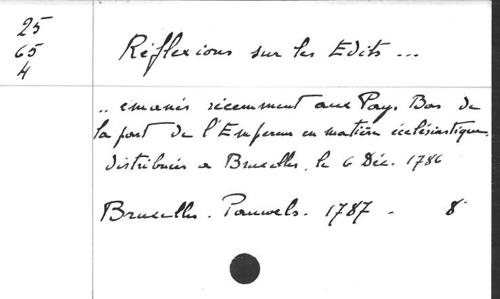 25
65
4
Réflexions sur les Edits ...
.. emanés récemment aux Pays Bas de
la part de l'Empereur en matière ecclésiastique,
distribués a Bruxelles, le 6 Déc. 1786
Bruxelles. Pauwels. 1787 - 8°